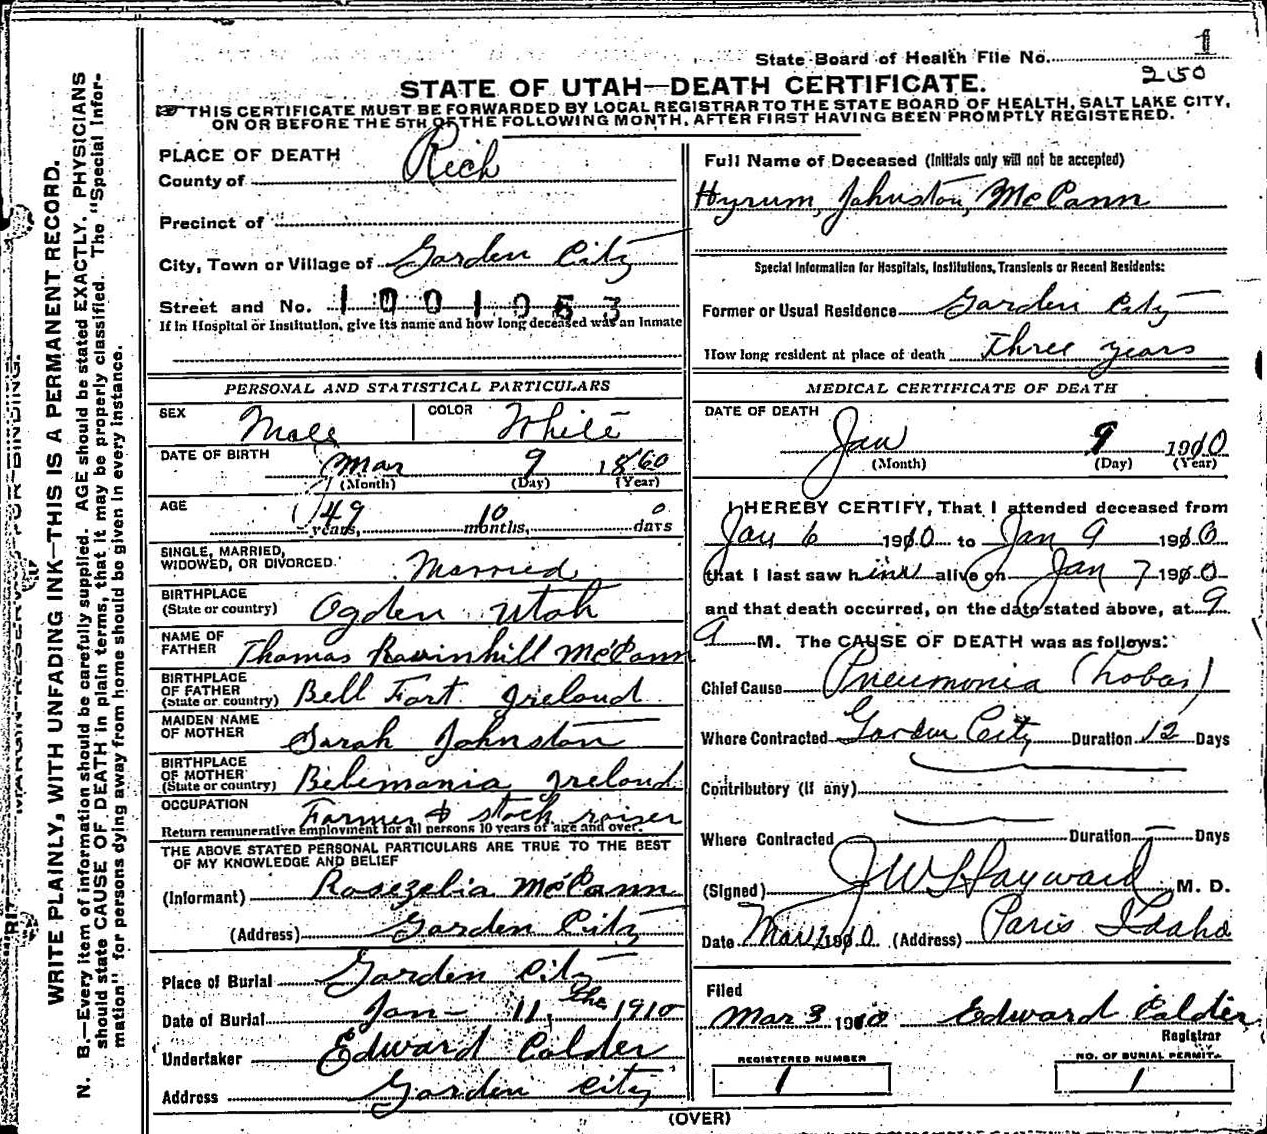 1
State Board of Health File No.
250
STATE OF UTAH—DEATH CERTIFICATE.
THIS CERTIFICATE MUST BE FORWARDED BY LOCAL REGISTRAR TO THE STATE BOARD OF HEALTH, SALT LAKE CITY,
ON OR BEFORE THE 5TH OF THE FOLLOWING MONTH, AFTER FIRST HAVING BEEN PROMPTLY REGISTERED.
WRITE PLAINLY, WITH UNFADING INK—THIS IS A PERMANENT RECORD.
N. B.—Every item of information should be carefully supplied. AGE should be stated EXACTLY. PHYSICIANS
should state CAUSE OF DEATH in plain terms, that it may be properly classified. The "Special Infor-
mation" for persons dying away from home should be given in every instance.
PLACE OF DEATH
County of Rich
Precinct of
City, Town or Village of Garden City
Street and No. 1001053
If in Hospital or Institution, give its name and how long deceased was an Inmate
PERSONAL AND STATISTICAL PARTICULARS
SEX Male COLOR White
DATE OF BIRTH Mar 9 1860
(Month) (Day) (Year)
AGE 49 years, 10 months, 0 days
SINGLE, MARRIED,
WIDOWED, OR DIVORCED Married
BIRTHPLACE
(State or country) Ogden Utah
NAME OF
FATHER Thomas Ravinhill McCann
BIRTHPLACE
OF FATHER
(State or country) Bell Fort Ireland
MAIDEN NAME
OF MOTHER Sarah Johnston
BIRTHPLACE
OF MOTHER
(State or country) Ireland
OCCUPATION Farmer & stock raiser
Return remunerative employment for all persons 10 years of age and over.
THE ABOVE STATED PERSONAL PARTICULARS ARE TRUE TO THE BEST
OF MY KNOWLEDGE AND BELIEF
(Informant) Rosezelia McCann
(Address) Garden City
Place of Burial Garden City
Date of Burial Jan- 11, the 1910
Undertaker Edward Calder
Address Garden City
Full Name of Deceased (Initials only will not be accepted)
Hyrum, Johnston, McCann
Special Information for Hospitals, Institutions, Transients or Recent Residents:
Former or Usual Residence Garden City
How long resident at place of death Three years
MEDICAL CERTIFICATE OF DEATH
DATE OF DEATH
Jan 9 1910
(Month) (Day) (Year)
I HEREBY CERTIFY, That I attended deceased from
Jan 6 1910 to Jan 9 1910
that I last saw him alive on Jan 7 1910
and that death occurred, on the date stated above, at 9
a M. The CAUSE OF DEATH was as follows:
Chief Cause Pneumonia (Lobar)
Where Contracted Garden City Duration 12 Days
Contributory (If any)
Where Contracted Duration Days
(Signed) J W Hayward M. D.
Date Mar 1910 (Address) Paris Idaho
Filed
Mar 3 1910 Edward Calder
Registrar
REGISTERED NUMBER
1
NO. OF BURIAL PERMIT
1
(OVER)